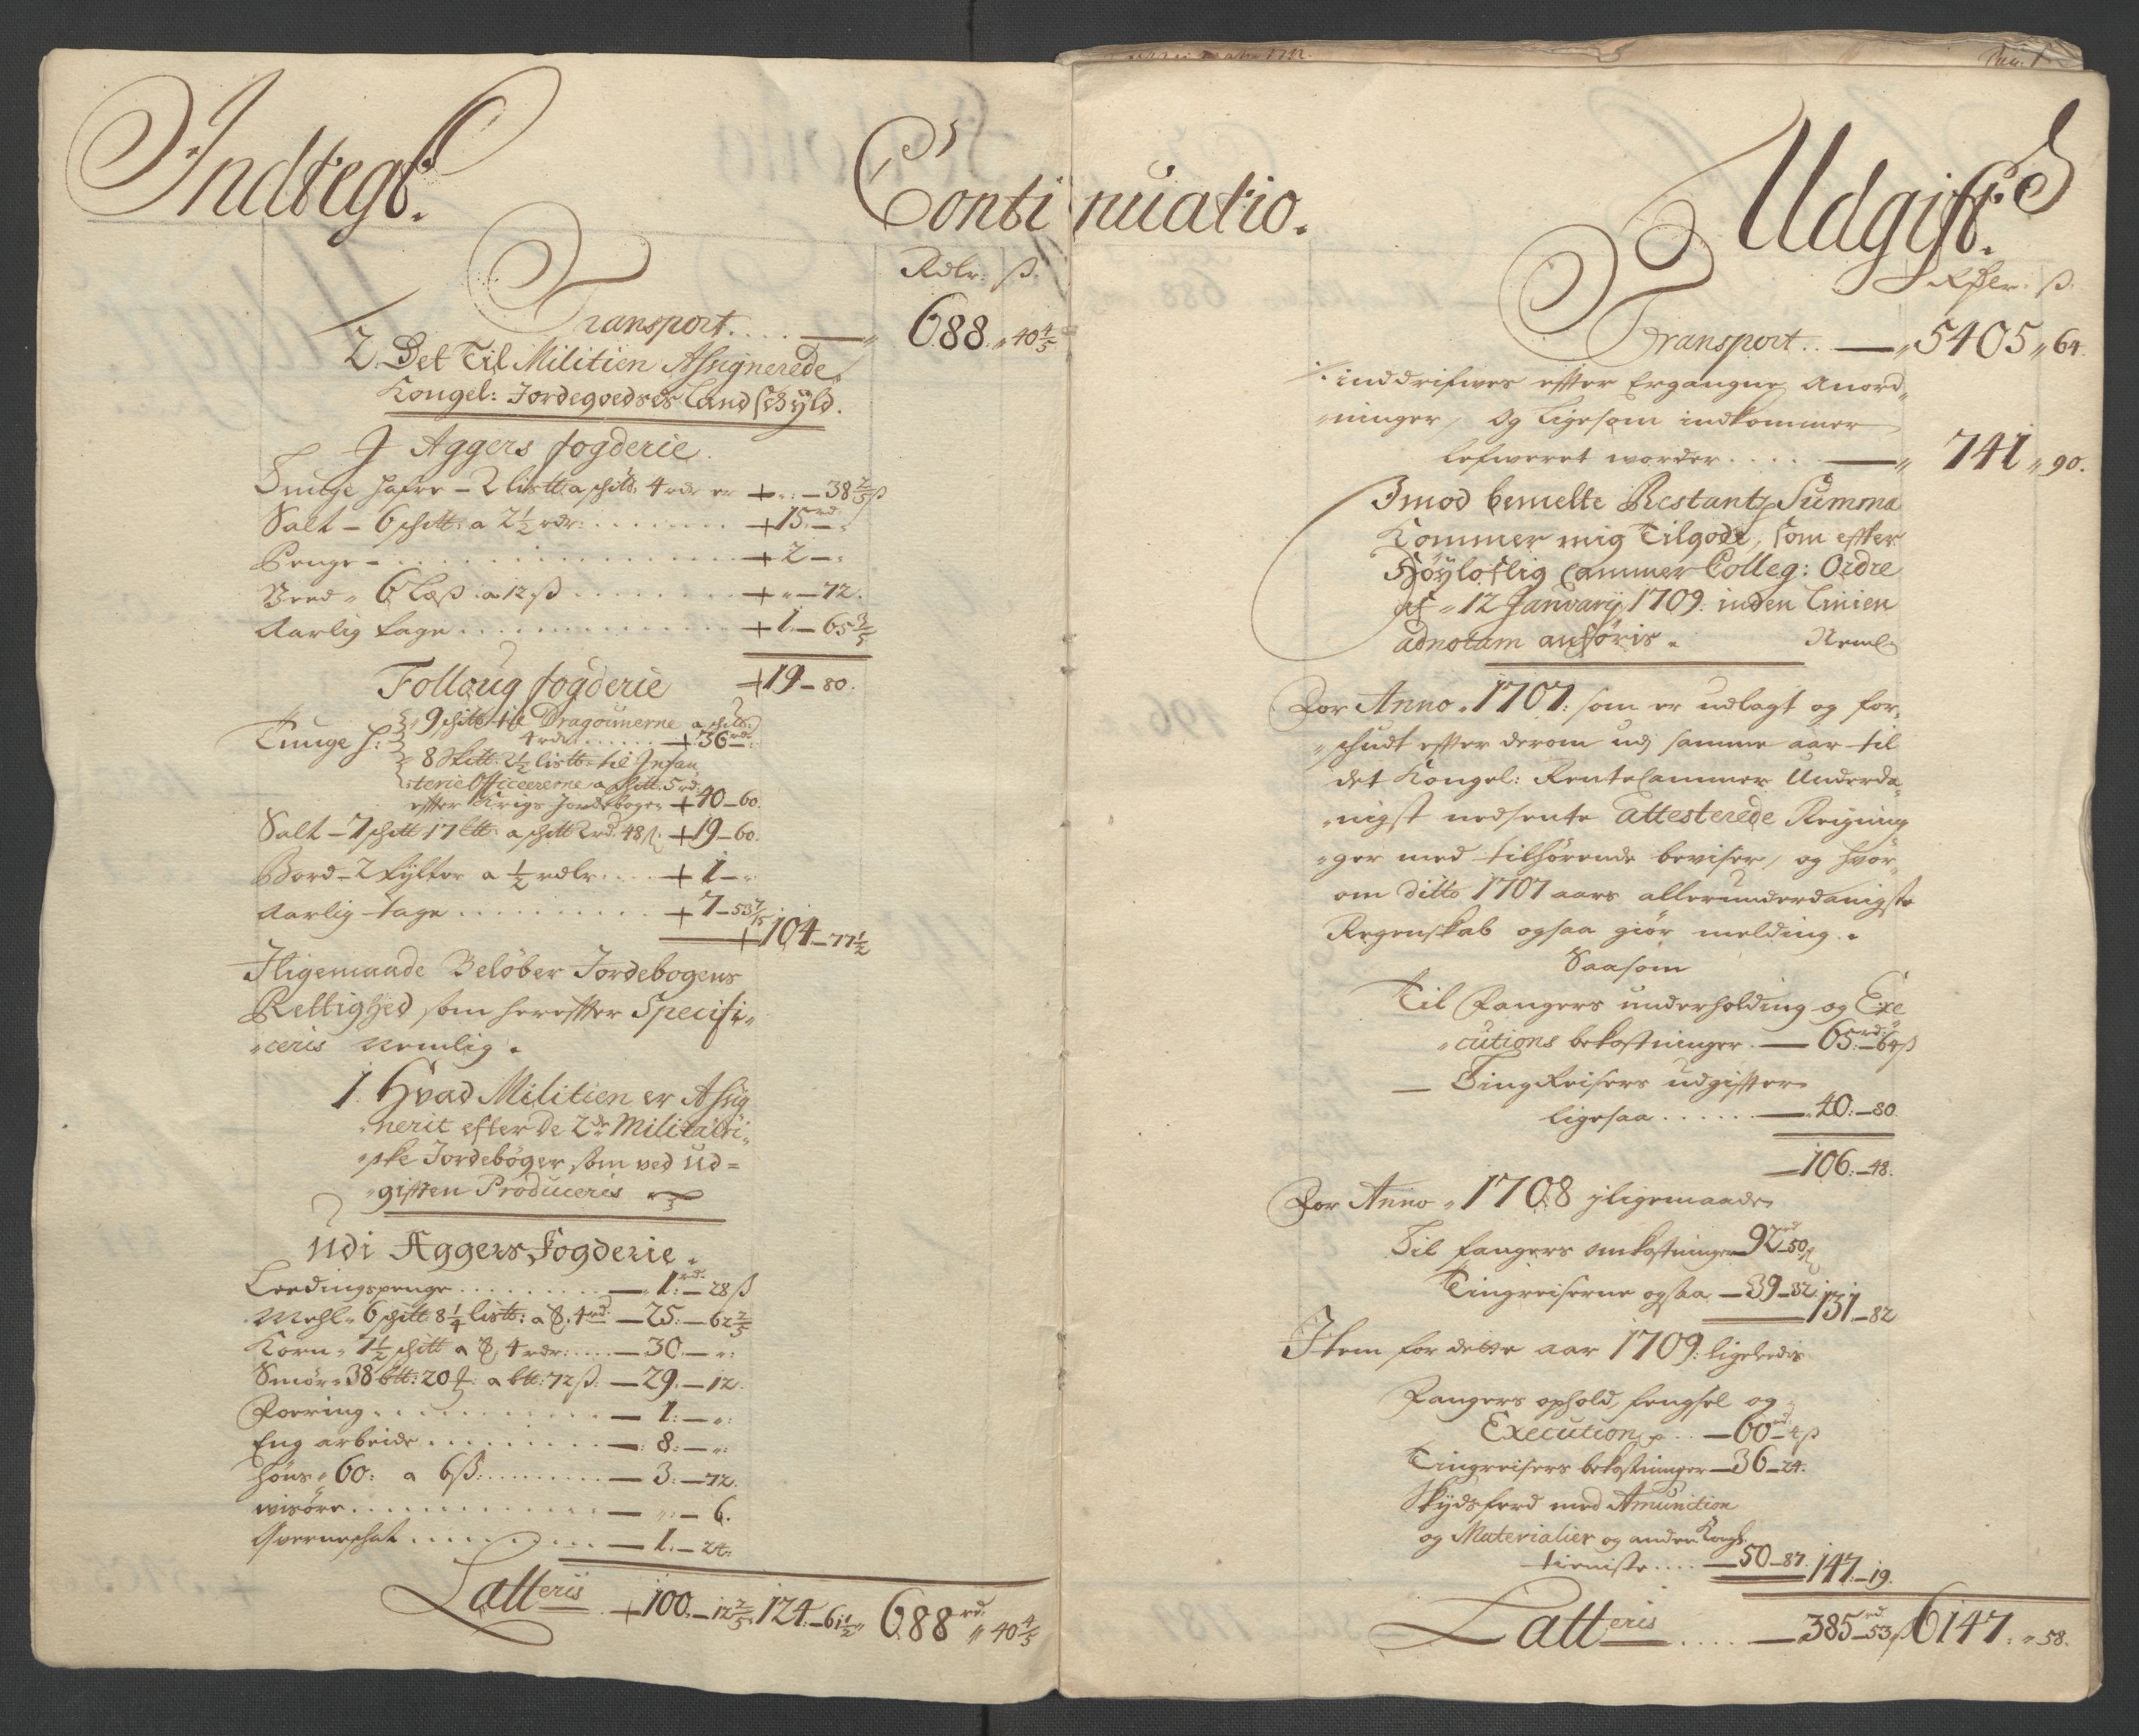 Indtegt.
Continuatio.
Rdlr: ß.
Transport. . . . — „ 688 „ 40 4/5
2 Det Til Militien Assignerede
Kongel: Jordegoedses Landschyld.
J Aggers fogderie.
Tunge hafre – 2 listt: a schitt. 4 rdr er + „: – 38 2/5 ß
Salt – 6 schitt: a 2 1/2 rdr: . . . . . . + 15 rd: – „
Penge – . . . . . . . . . . + 2 – „
Veed „ 6 Læß: a 12 ß . . . . . . + „ – 72.
Aarlig tage . . . . . . . . . + 1. – 65 3/5
+ 19 – 80.
Folloug fogderie
Tunge h: 9 schitt til Dragounerne a schitt:
4 rdr . . . . . + 36 rdr: „
8 Skitt: 2 1/2 listt: til Infan
„terie Officererne a schitt: 5 rd:
efter Krigs Jordebogen + 40 – 60.
Salt – 7 schitt 17 ltt: a schitt 2 rd: 48 ß. + 19 – 60.
Bord – 2 tylter a 1/2 rdlr. . . . + 1 – „
Aarlig tage . . . . . . . . . + 7 – 53 7/15
+ 104. – 77 1/2
Iligemaade Beløber Jordebogens
Rettighed som herefter Specifi„
„ceris Nemlig.
1. Hvad Militien er Assig
„nerit efter De 2de Militairi„
„ske Jordebøger som ved Ud=
„giften Produceris
Udi Aggers Fogderie.
Leedingspenge . . . . . . . — 1 rd: – 28 ß
Mehl „ 6 schitt 8 1/4 listt: a ℔. 4 rd: — 25: – 62 2/5
Korn „ 7 1/2 schitt a ℔. 4 rdr: . . . . — 30: – „:
Smør „ 38 btt: 20 ℔: a btt: 72 ß: — 29. – 12.
Foering . . . . . . . . . — 1: – „:
Eng arbeide . . . . . . . . — 8: – „:
Høns „ 60: a 6 ß: . . . . . . . — 3: – 72.
wisøre . . . . . . . . . . — „: – 6.
Qverneschat . . . . . . . . — 1. – 24:
Latteris . + 100. – 12 2/5. 124. – 61 1/2 „ 688 rd: „ 40 4/5
Udgift.
Rdlr: ß.
Transport . . — „ 5405 „ 64.
inddrifwes efter Ergangne Anord„
„ninger, Og ligesom indkommer
lefweret worder . . . . . — „ 741 „ 90.
Imod bemelte Restantz Summa
Kommer mig Tilgode, som efter
Høyloflig Cammer Colleg: Ordre
af „ 12 January 1709: inden Linien
adnotam anføris. Neml:
For Anno „ 1707: som er udlagt og for„
„schudt efter derom udj samme aar til
det Kongel: Rentecammer Underda„
„nigst nedsente attesterede Reigning
„ger med tilhørende beviser, og hvor„
om ditto 1707 aars allerunderdanigste
Regenskab ogsaa giør melding.
Saasom
Til Fangers underholding og Exe
„cutions bekostninger. — 65 rd: – 64 ß
— Tingreisers udgifter
ligesaa . . . . . . — 40: – 80
— 106: – 48.
For Anno „ 1708 jligemaade
Til fangers omkostninger 92 rd – 50 ß
Tingreiserne ogsaa — 39 – 32.
131. – 82
Item for dette aar 1709: ligeledis
Fangers ophold, fengsel og
Execution . . — 60 rd – 4 ß
Tingreisers bekostninger — 36 – 24.
Skydsferd med Amunition
og Materialier og anden Kongl:
tieniste . . . . — 50 – 87. 147: – 19.
Latteris . . . . — 385 rd – 53 ß 6147. „ 58.